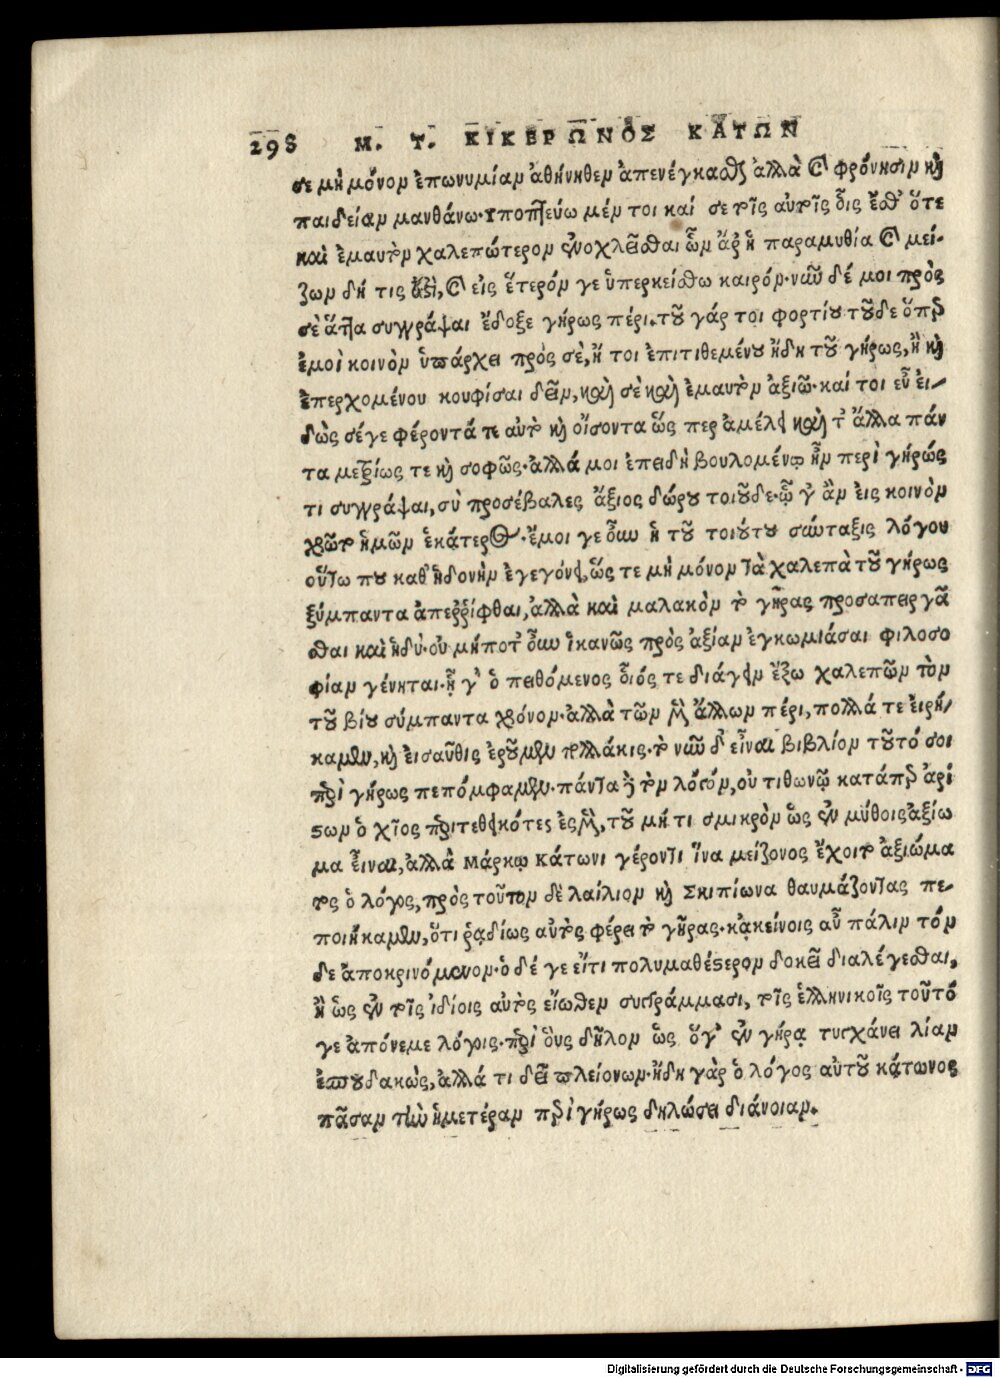 298 Μ. Τ. ΚΙΚΕΡΩΝΟΣ ΚΑΤΩΝ
σε μὴ μόνον ἐπωνυμίαν ἀθήνηθεν ἀπενέγκασθαι ἀλλὰ καὶ φρόνησιν καὶ
παιδείαν μανθάνω. ὑποπτεύω μέν τοι καί σε τοῖς αὐτοῖς οἷς ἔσθ' ὅτε
καὶ ἐμαυτὸν χαλεπώτερον ἐνοχλεῖσθαι ὧν ἄρ' ἡ παραμυθία καὶ μεί-
ζων δή τις ἐστὶ, καὶ εἰς ἕτερόν γε ὑπερκείσθω καιρόν. νῦν δέ μοι πρὸς
σὲ ἅττα συγγράψαι ἔδοξε γήρως πέρι. τοῦ γάρ τοι φορτίου τοῦδε ὅπερ
ἐμοὶ κοινὸν ὑπάρχει πρός σὲ, ἤ τοι ἐπιτιθεμένου ἤδη τοῦ γήρως, ἢ καὶ
ἐπερχομένου κουφίσαι δεῖν, καὶ σὲ καὶ ἐμαυτὸν ἀξιῶ. καί τοι εὖ εἰ-
δὼς σέγε φέροντά τε αὐτὸ καὶ οἴσοντα ὥς περ ἀμέλει καὶ τ' ἄλλα πάν
τα μετρίως τε καὶ σοφῶς. ἀλλά μοι ἐπειδὴ βουλομένῳ ἦν περὶ γήρώς
τι συγγράψαι, σὺ προσέβαλες ἄξιος δώρου τοιοῦδε. ᾧ γ' ἂν εἰς κοινὸν
χρῷτο ἡμῶν ἑκάτερος. ἔμοι γε οὖν ἡ τοῦ τοιούτου σύνταξις λόγου
οὕτω που καθ' ἡδονὴν ἐγεγόνει, ὥς τε μὴ μόνον τὰ χαλεπὰ τοῦ γήρως
ξύμπαντα ἀπερρίφθαι, ἀλλὰ καὶ μαλακὸν τὸ γῆρας προσαπειργᾶ
σθαι καὶ ἡδύ. οὐ μήποτ' οὖν ἱκανῶς πρὸς ἀξίαν ἐγκωμιάσαι φιλοσο
φίαν γένηται. ᾗ γ' ὁ πειθόμενος οἷός τε διάγειν ἔξω χαλεπῶν τὸν
τοῦ βίου σύμπαντα χρόνον. ἀλλὰ τῶν μὲν ἄλλων πέρι, πολλά τε εἰρή-
καμεν, καὶ εἰσαῦθις ἐροῦμεν πολλάκις. τὸ νῦν δ' εἶναι βιβλίον τοῦτό σοι
περὶ γήρως πεπόμφαμεν. πάντα δὲ τὸν λόγον, οὐ τιθωνῷ κατάπερ ἀρί
στων ὁ χῖος περιτεθεικότες ἐσμὲν, τοῦ μή τι σμικρὸν ὡς ἐν μύθοις ἀξίω
μα εἶναι, ἀλλὰ Μάρκῳ Κάτωνι γέροντι ἵνα μείζονος ἔχοιτο ἀξιώμα
τος ὁ λόγος, πρὸς τοῦτον δὲ λαίλιον καὶ Σκιπίωνα θαυμάζοντας πε-
ποιήκαμεν, ὅτι ῥᾳδίως αὐτὸς φέρει τὸ γῆρας. κἀκείνοις αὖ πάλιν τόν
δε ἀποκρινόμενον. ὁ δέ γε εἴτι πολυμαθέστερον δοκεῖ διαλέγεσθαι,
ἢ ὡς ἐν τοῖς ἰδίοις αὐτὸς εἴωθεν συγγράμμασι, τοῖς ἑλληνικοῖς τοῦτό
γε ἀπόνεμε λόγοις. περὶ οὓς δῆλον ὡς ὅγ' ἐν γήρᾳ τυγχάνει λίαν
ἐσπουδακὼς, ἀλλά τι δεῖ πλειόνων. ἤδη γὰρ ὁ λόγος αὐτοῦ κάτωνος
πᾶσαν τὴν ἡμετέραν περὶ γήρως δηλώσει διάνοιαν.
Digitalisierung gefördert durch die Deutsche Forschungsgemeinschaft - DFG